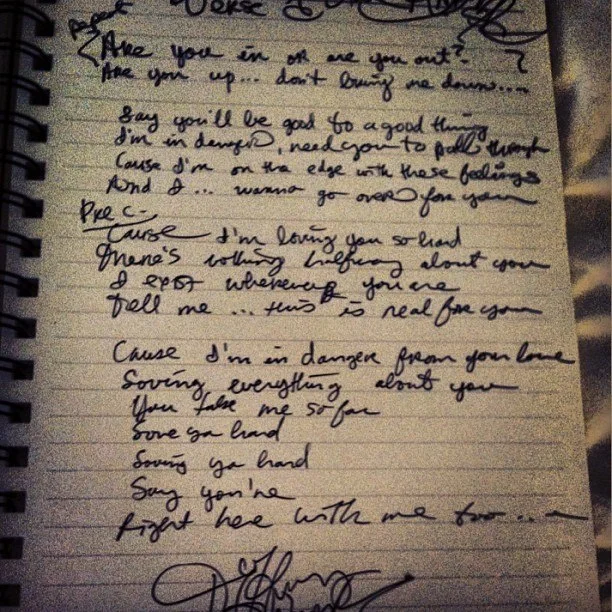 Repeat Verse
Are you in or are you out?
Are you up... don't bring me down....
Say you'll be good to a good thing
I'm in danger, need you to pull through
Cause I'm on the edge with these feelings
And I ... wanna go over for you
Pre C-
Cause I'm loving you so hard
There's nothing halfway about you
I exist wherever you are
Tell me ... this is real for you
Cause I'm in danger from your love
Loving everything about you
You take me so far
Love ya hard
Loving ya hard
Say you're
Right here with me too...